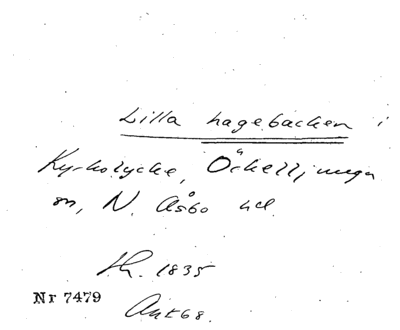 Lilla hagebacken i
Kyrkolycke, Öckelljunga
sn, N. Åsbo hd.
Th. 1835
Nr 7479
Ant 68.